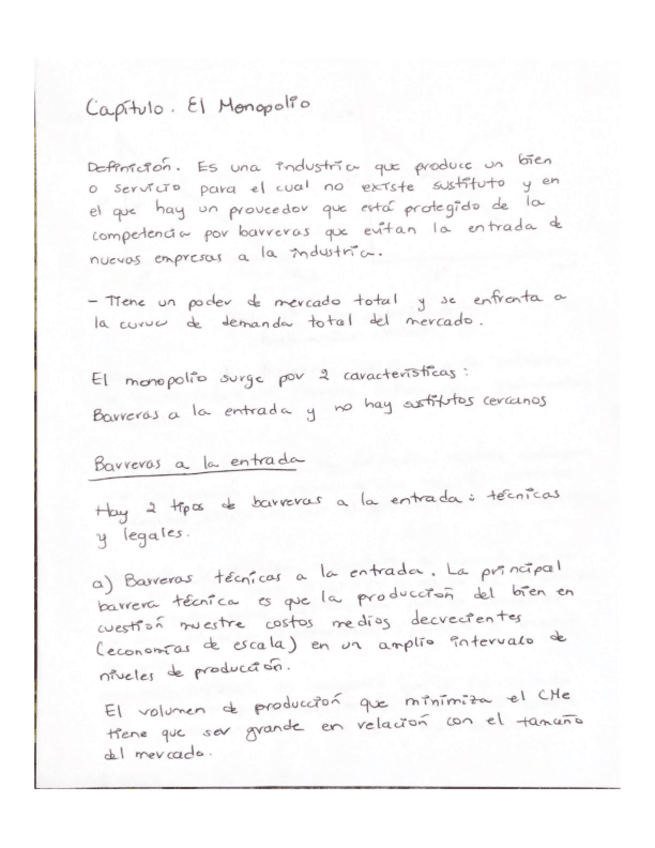 Capítulo. El Monopolio
Definición. Es una industria que produce un bien
o servicio para el cual no existe sustituto y en
el que hay un proveedor que está protegido de la
competencia por barreras que evitan la entrada de
nuevas empresas a la industria.
- Tiene un poder de mercado total y se enfrenta a
la curva de demanda total del mercado.
El monopolio surge por 2 características:
Barreras a la entrada y no hay sustitutos cercanos
Barreras a la entrada
Hay 2 tipos de barreras a la entrada: técnicas
y legales.
a) Barreras técnicas a la entrada. La principal
barrera técnica es que la producción del bien en
cuestión muestre costos medios decrecientes
(economías de escala) en un amplio intervalo de
niveles de producción.
El volumen de producción que minimiza el CMe
tiene que ser grande en relación con el tamaño
del mercado.